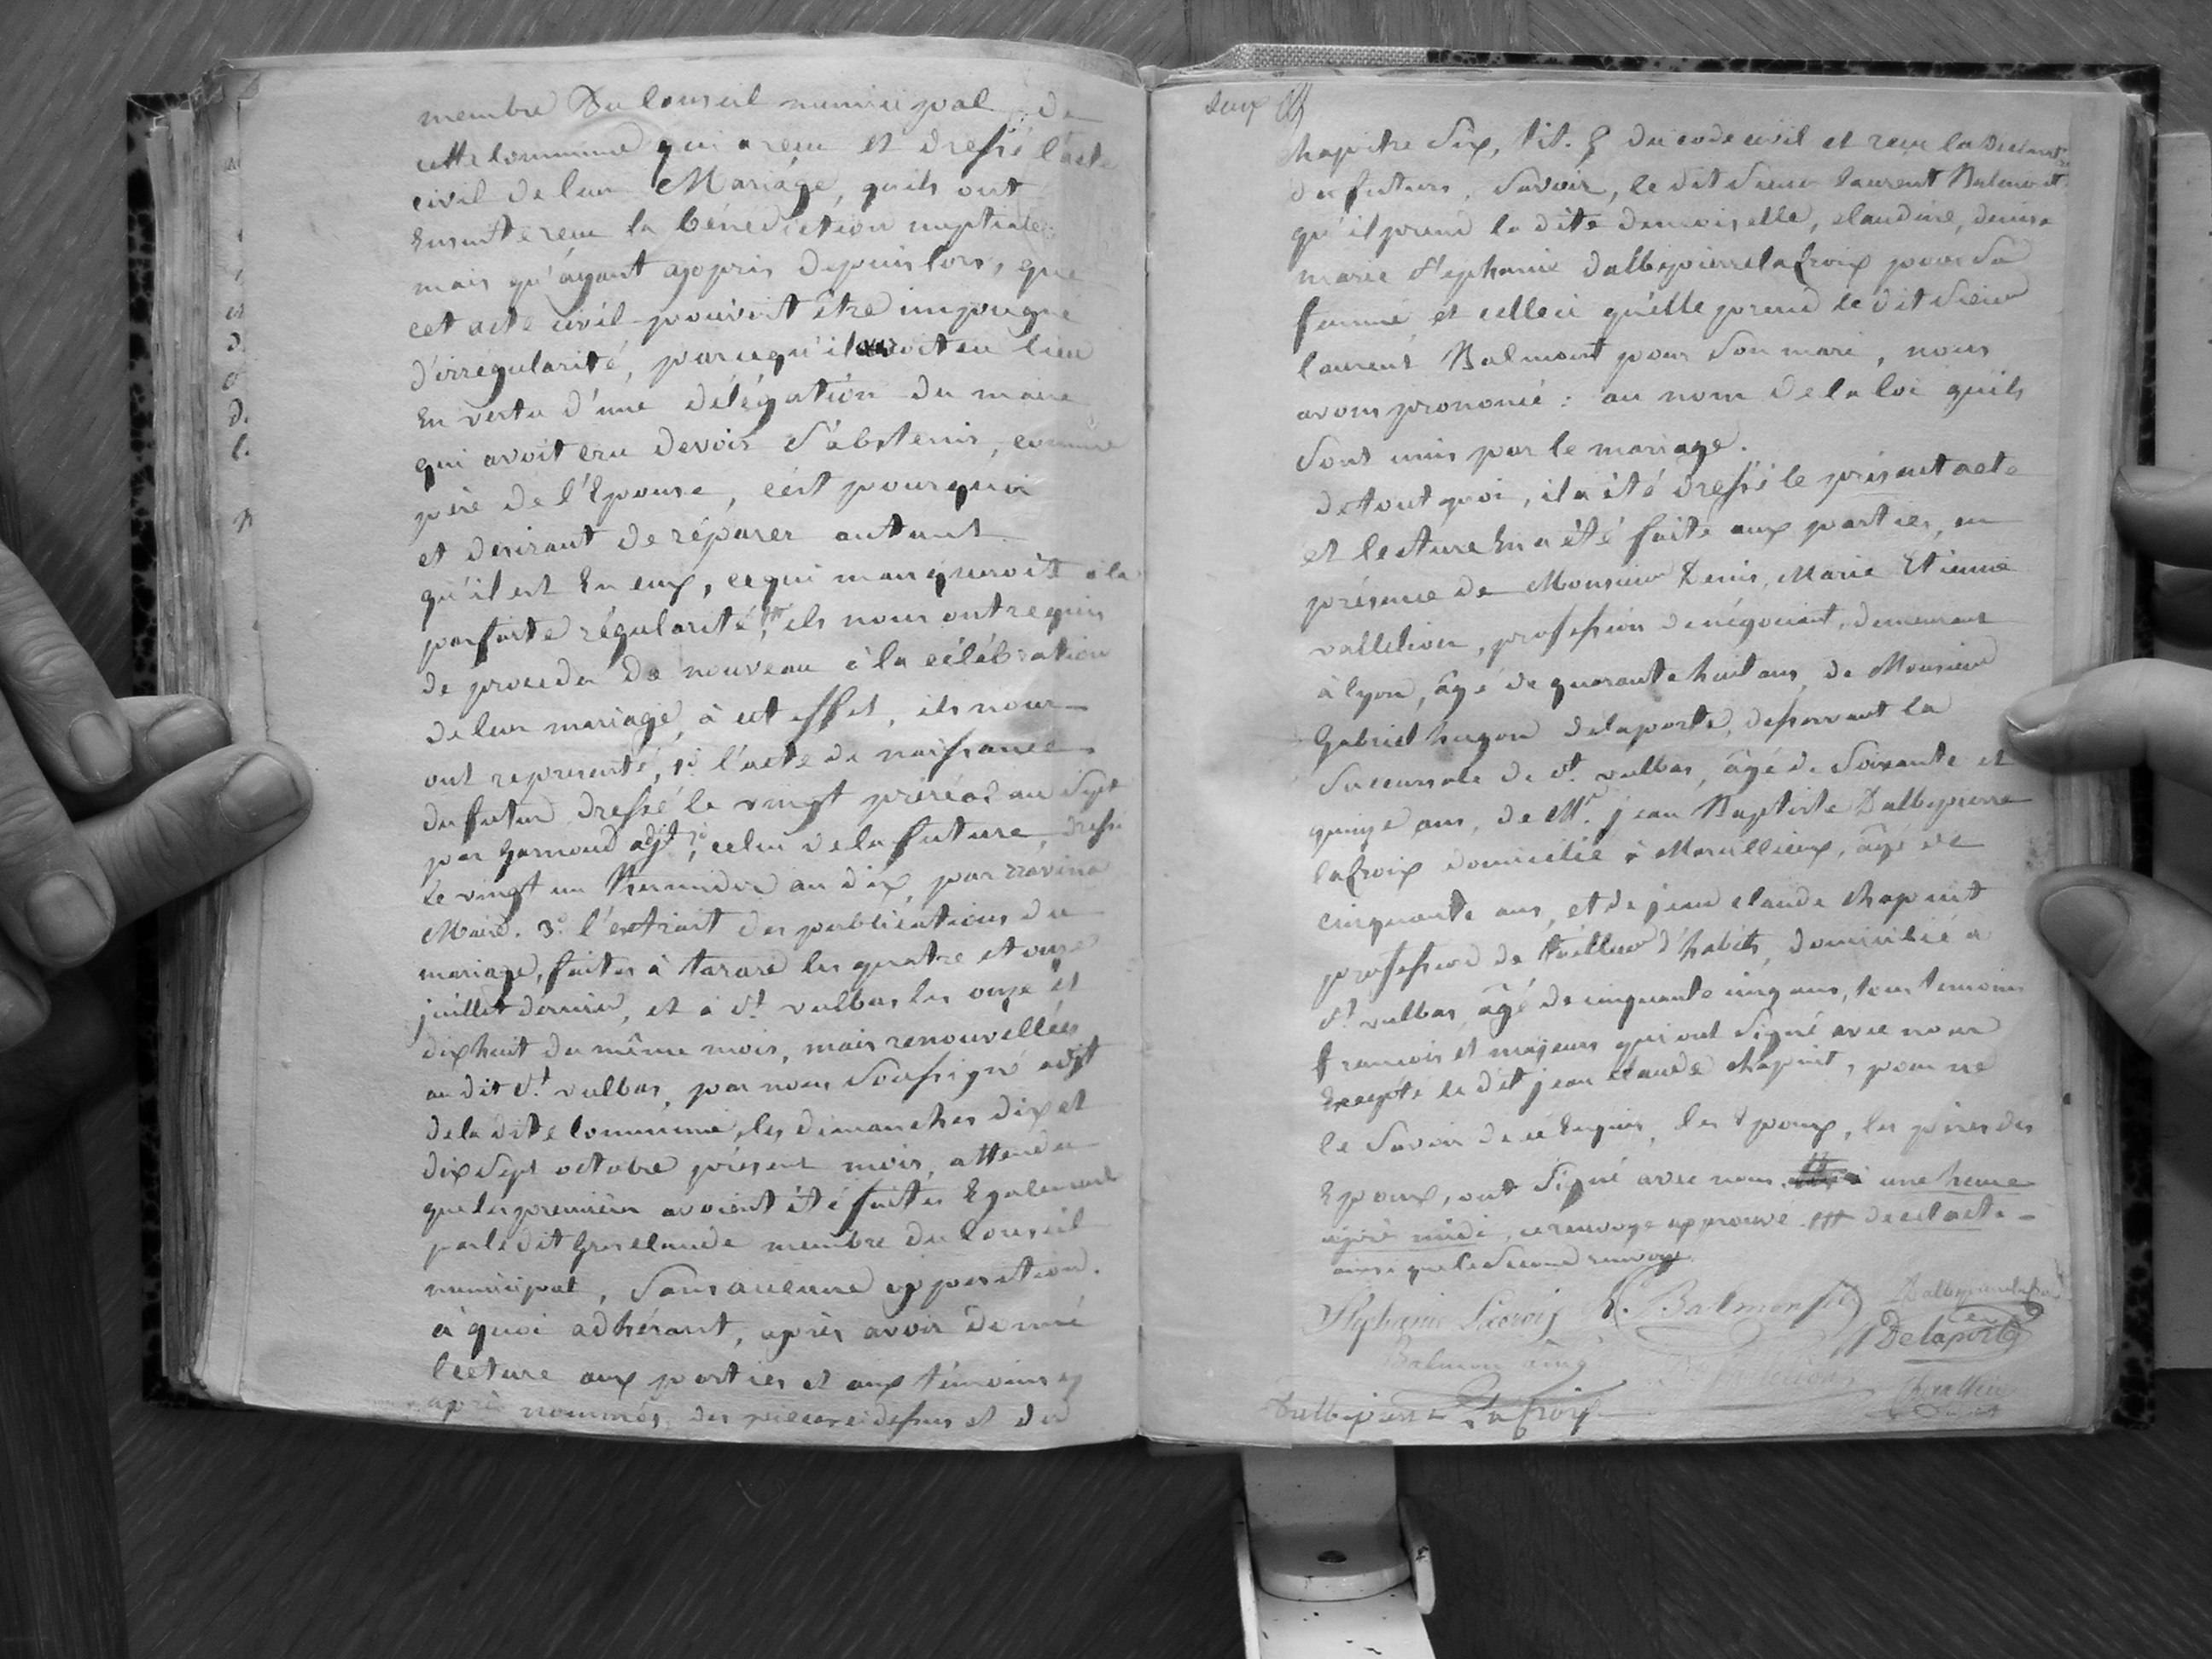 membre Du Conseil municipal de
cette Commune qui a reçu et dressé l'acte
civil de leur Mariage, qu'ils ont
Ensuite reçu la bénédiction nuptiale
mais qu'ayant appris depuis lors, que
cet acte civil pouvoit être impugné
d'irrégularité, parcequ'il avoit eu lieu
En vertu d'une délégation du maire
qui avoit cru devoir s'abstenir, comme
père de l'Epouse, c'est pourquoi
et desirant de réparer autant
qu'il est En eux, ce qui manqueroit à la
parfaite régularité, ils nous ont requis
de proceder De nouveau à la célébration
de leur mariage, à cet effet, ils nous
ont representé, 1° l'acte de naissance
du futur dressé le vingt préréal an Sept
par Garnoud adjt 2° celui de la future, dressé
le vingt un Thermidor an dix, par
Maire. 3° l'extrait des publications du
mariage, faites à tarare les quatre et onze
juillet dernier, et à St vulbas les onze et
dix huit du même mois, mais renouvellées
au dit St vulbas, par nous Soussigné adjt
de la dite Commune, les dimanches dix et
dix Sept octobre présent mois, attendu
que les premières avoient été faites Egalement
par le dit Grosclaude membre du Conseil
municipal, Sans aucune opposition.
à quoi adhérant, après avoir donné
lecture aux parties et aux témoins cy
après nommés, des pièces cidessus et du
deux
chapitre Six, tit. 5 du code civil et reçu la Déclarat.
des futurs, Savoir, le dit Sieur laurent Balmont
qu'il prend la dite demoiselle, claudine, denise
marie Stephanie dalbepierre lacroix pour Sa
femme et celle ci qu'elle prend le dit Sieur
laurent Balmont pour Son mari, nous
avons prononcé : au nom de la loi qu'ils
Sont unis par le mariage.
de tout quoi, il a été dressé le présent acte
et lecture En a été faite aux parties, en
présence de Monsieur Denis, Marie Etienne
vallelion, profession de négociant, demeurant
à lyon, âgé de quarante huit ans, de Monsieur
Gabriel hugon delaporte, desservant la
Succursale de St vulbas, âgé de Soixante et
quinze ans, de Mr. jean Baptiste Dalbepierre
lacroix domicilié à Marcillieux, âgé de
cinquante ans, et de jean claude Chapuit
profession de tailleur d'habits, domicilié à
St vulbas, âgé de cinquante cinq ans, tous temoins
francois et majeurs qui ont Signé avec nous
Excepté le dit jean claude Chapuit, pour ne
le Savoir de ce Enquis, les Epoux, les pères des
Epoux, ont Signé avec nous à une heure
après midi, ce renvoye approuvé de cet acte
ainsi que le Second renvoye
Stephanie Lacroix L. Balmont fils Dalbepierre lacroix
Balmon ainé Delaporte
Dalbepierre Lacroix